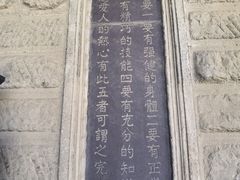 要一要有强健的身體二要有正
有精巧的技能四要有充分的知
愛人的熱心有此五者可謂之完